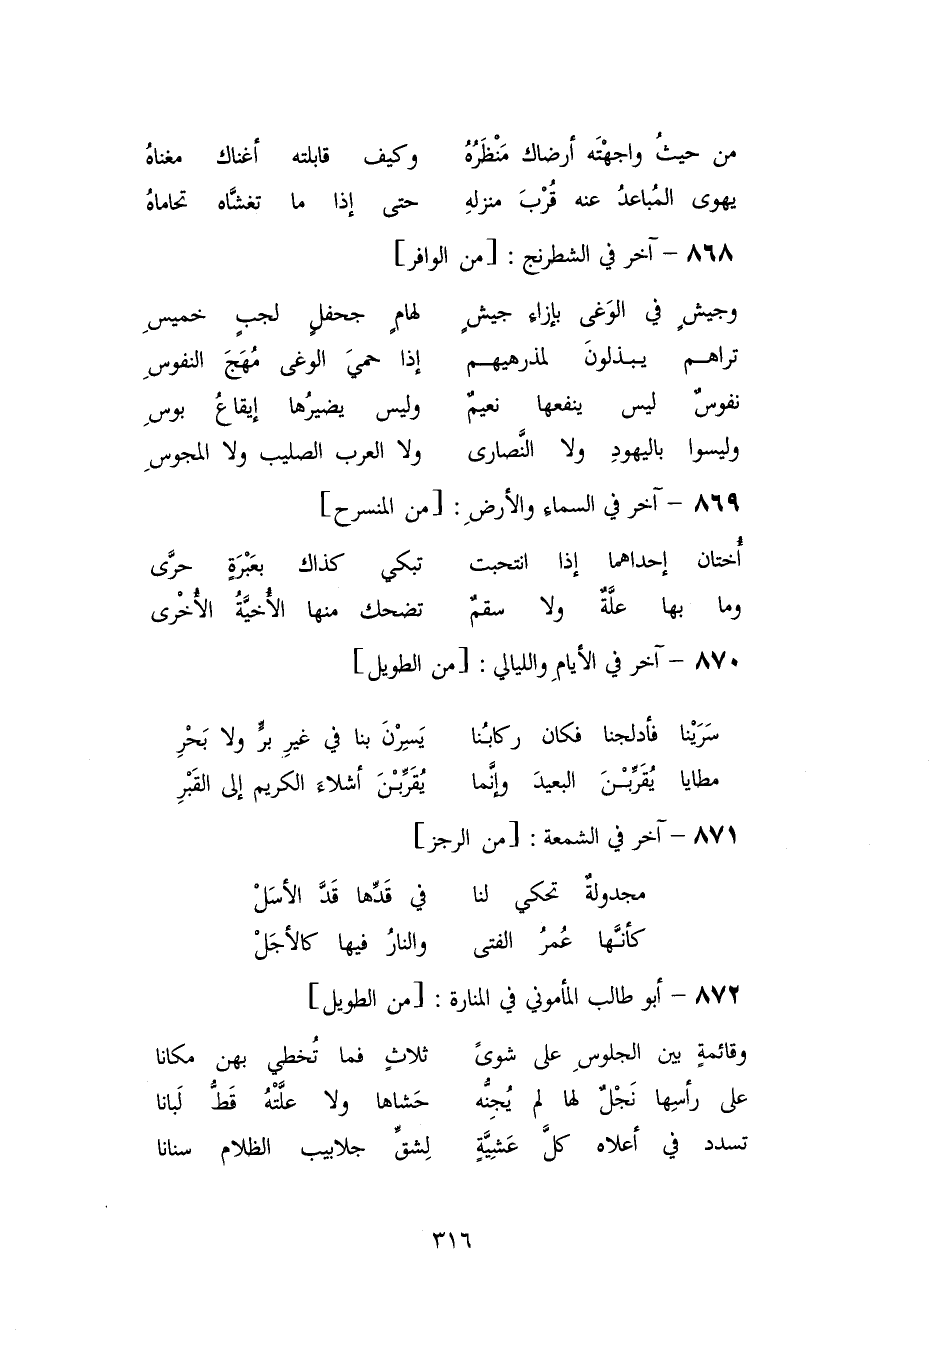 من حيثُ واجهْتَه أرضاك مَنْظَرُهُ وكيف قابلته أغناك مغناهُ
يهوى المُباعدُ عنه قُرْبَ منزلهِ حتى إذا ما تغشَّاه تحاماهُ
٨٦٨ - آخر في الشطرنج : [من الوافر]
وجيشٍ في الوَغى بإزاءِ جيشٍ لهامٍ جحفلٍ لجبٍ خميسِ
تراهم يبذلونَ لمذرهيهم إذا حميَ الوغى مُهَجَ النفوسِ
نفوسٌ ليس ينفعها نعيمٌ وليس يضيرُها إيقاعُ بوسِ
وليسوا باليهودِ ولا النَّصارى ولا العرب الصليب ولا المجوسِ
٨٦٩ - آخر في السماء والأرضِ : [من المنسرح]
أُختان إحداهما إذا انتحبت تبكي كذاك بعَبْرَةٍ حرَّى
وما بها علَّةٌ ولا سقمٌ تضحك منها الأُخيَّةُ الأُخْرى
٨٧٠ - آخر في الأيامِ والليالي : [من الطويل]
سَرَيْنا فأدلجنا فكان ركابُنا يَسِرْنَ بنا في غيرِ برٍّ ولا بَحْرِ
مطايا يُقَرِّبْنَ البعيدَ وإنَّما يُقَرِّبْنَ أشلاءَ الكريم إلى القَبْرِ
٨٧١ - آخر في الشمعة : [من الرجز]
مجدولةٌ تحكي لنا في قَدِّها قَدَّ الأسَلْ
كأنَّها عُمرُ الفتى والنارُ فيها كالأجَلْ
٨٧٢ - أبو طالب المأموني في المنارة : [من الطويل]
وقائمةٍ بين الجلوسِ على شوىً ثلاثٍ فما تُخطي بهن مكانا
على رأسِها نَجْلٌ لها لم يُجِنُّه حَشاها ولا علَّتْهُ قَطُّ لَبانا
تسدد في أعلاه كلَّ عَشِيَّةٍ لِشقِّ جلابيب الظلام سنانا
٣١٦